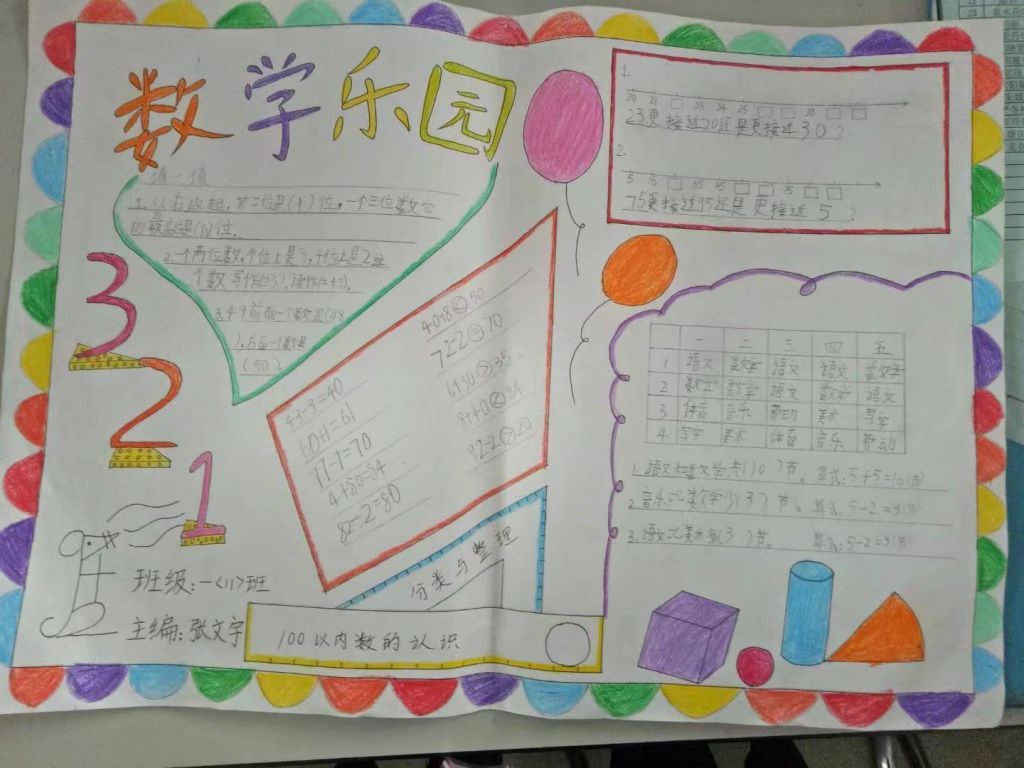 数学乐园
填一填
1. 从右边起,第二位是(十)位,一个三位数它
的最高是(百)位.
2.一个两位数,个位上是3,十位上是2这
个数写作(23),读作(二十三).
3.49前面一个数是(48
),后面一个数是
(50)
43-3=40
60+1=61
71-1=70
4+80=84
82-2=80
40+8<50
72-2=70
6+30>35
8+70<84
92-2>20
1.
20 21 □ 23 24 25 □ □ 28 □ □
23更接近20还是更接近30?
2.
75更接近95还是更接近5?
一 二 三 四 五
1 语文 数学 语文 语文 数学
2 数学 数学 语文 数学 语文
3 体育 音乐 劳动 美术 写字
4 写字 美术 体育 音乐 劳动
1.语文和数学共(10)节。 算式:5+5=10(节)
2.音乐比数学少(3)节。 算式:5-2=3(节)
3.语文比美术多(3)节。 算式:5-2=3(节)
3
2
1
班级:一<11>班
主编:张文宇
分类与整理
100以内数的认识